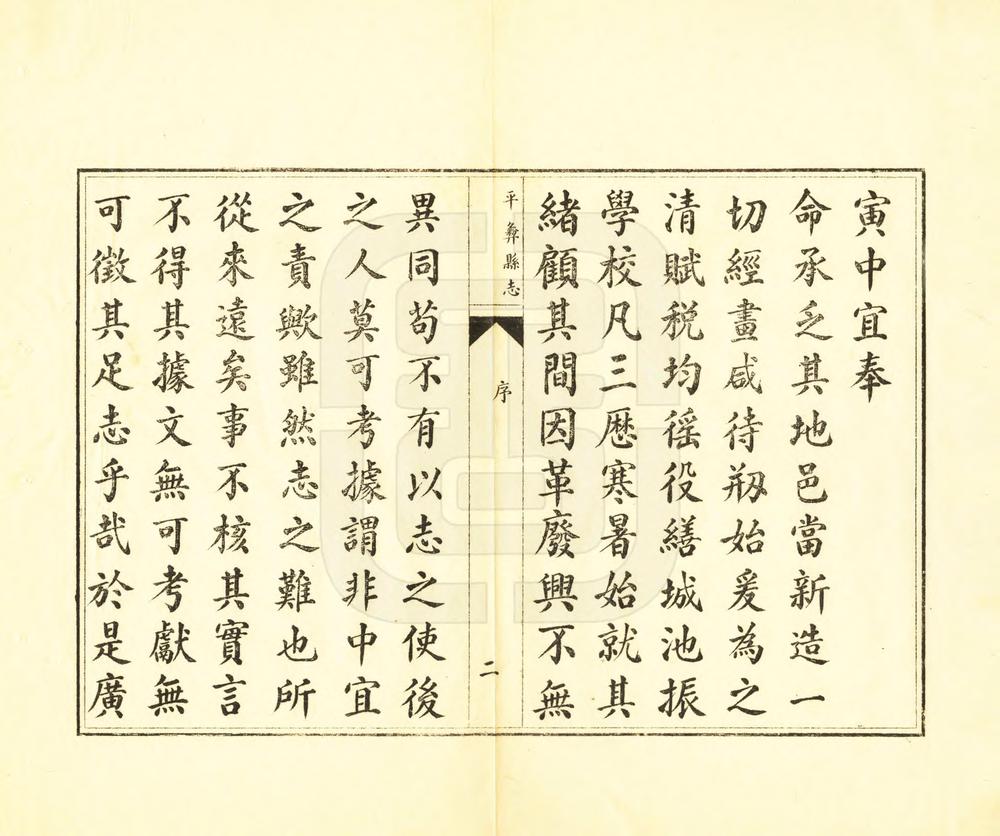 寅中宜奉
命承乏其地邑當新造一
切經畫咸待剏始爰為之
清賦税均徭役繕城池振
學校凡三歷寒暑始就其
緒顧其間因革廢興不無
平彝縣志
序
二
異同苟不有以志之使後
之人莫可考據謂非中宜
之責歟雖然志之難也所
從來遠矣事不核其實言
不得其據文無可考獻無
可徵其足志乎哉於是廣